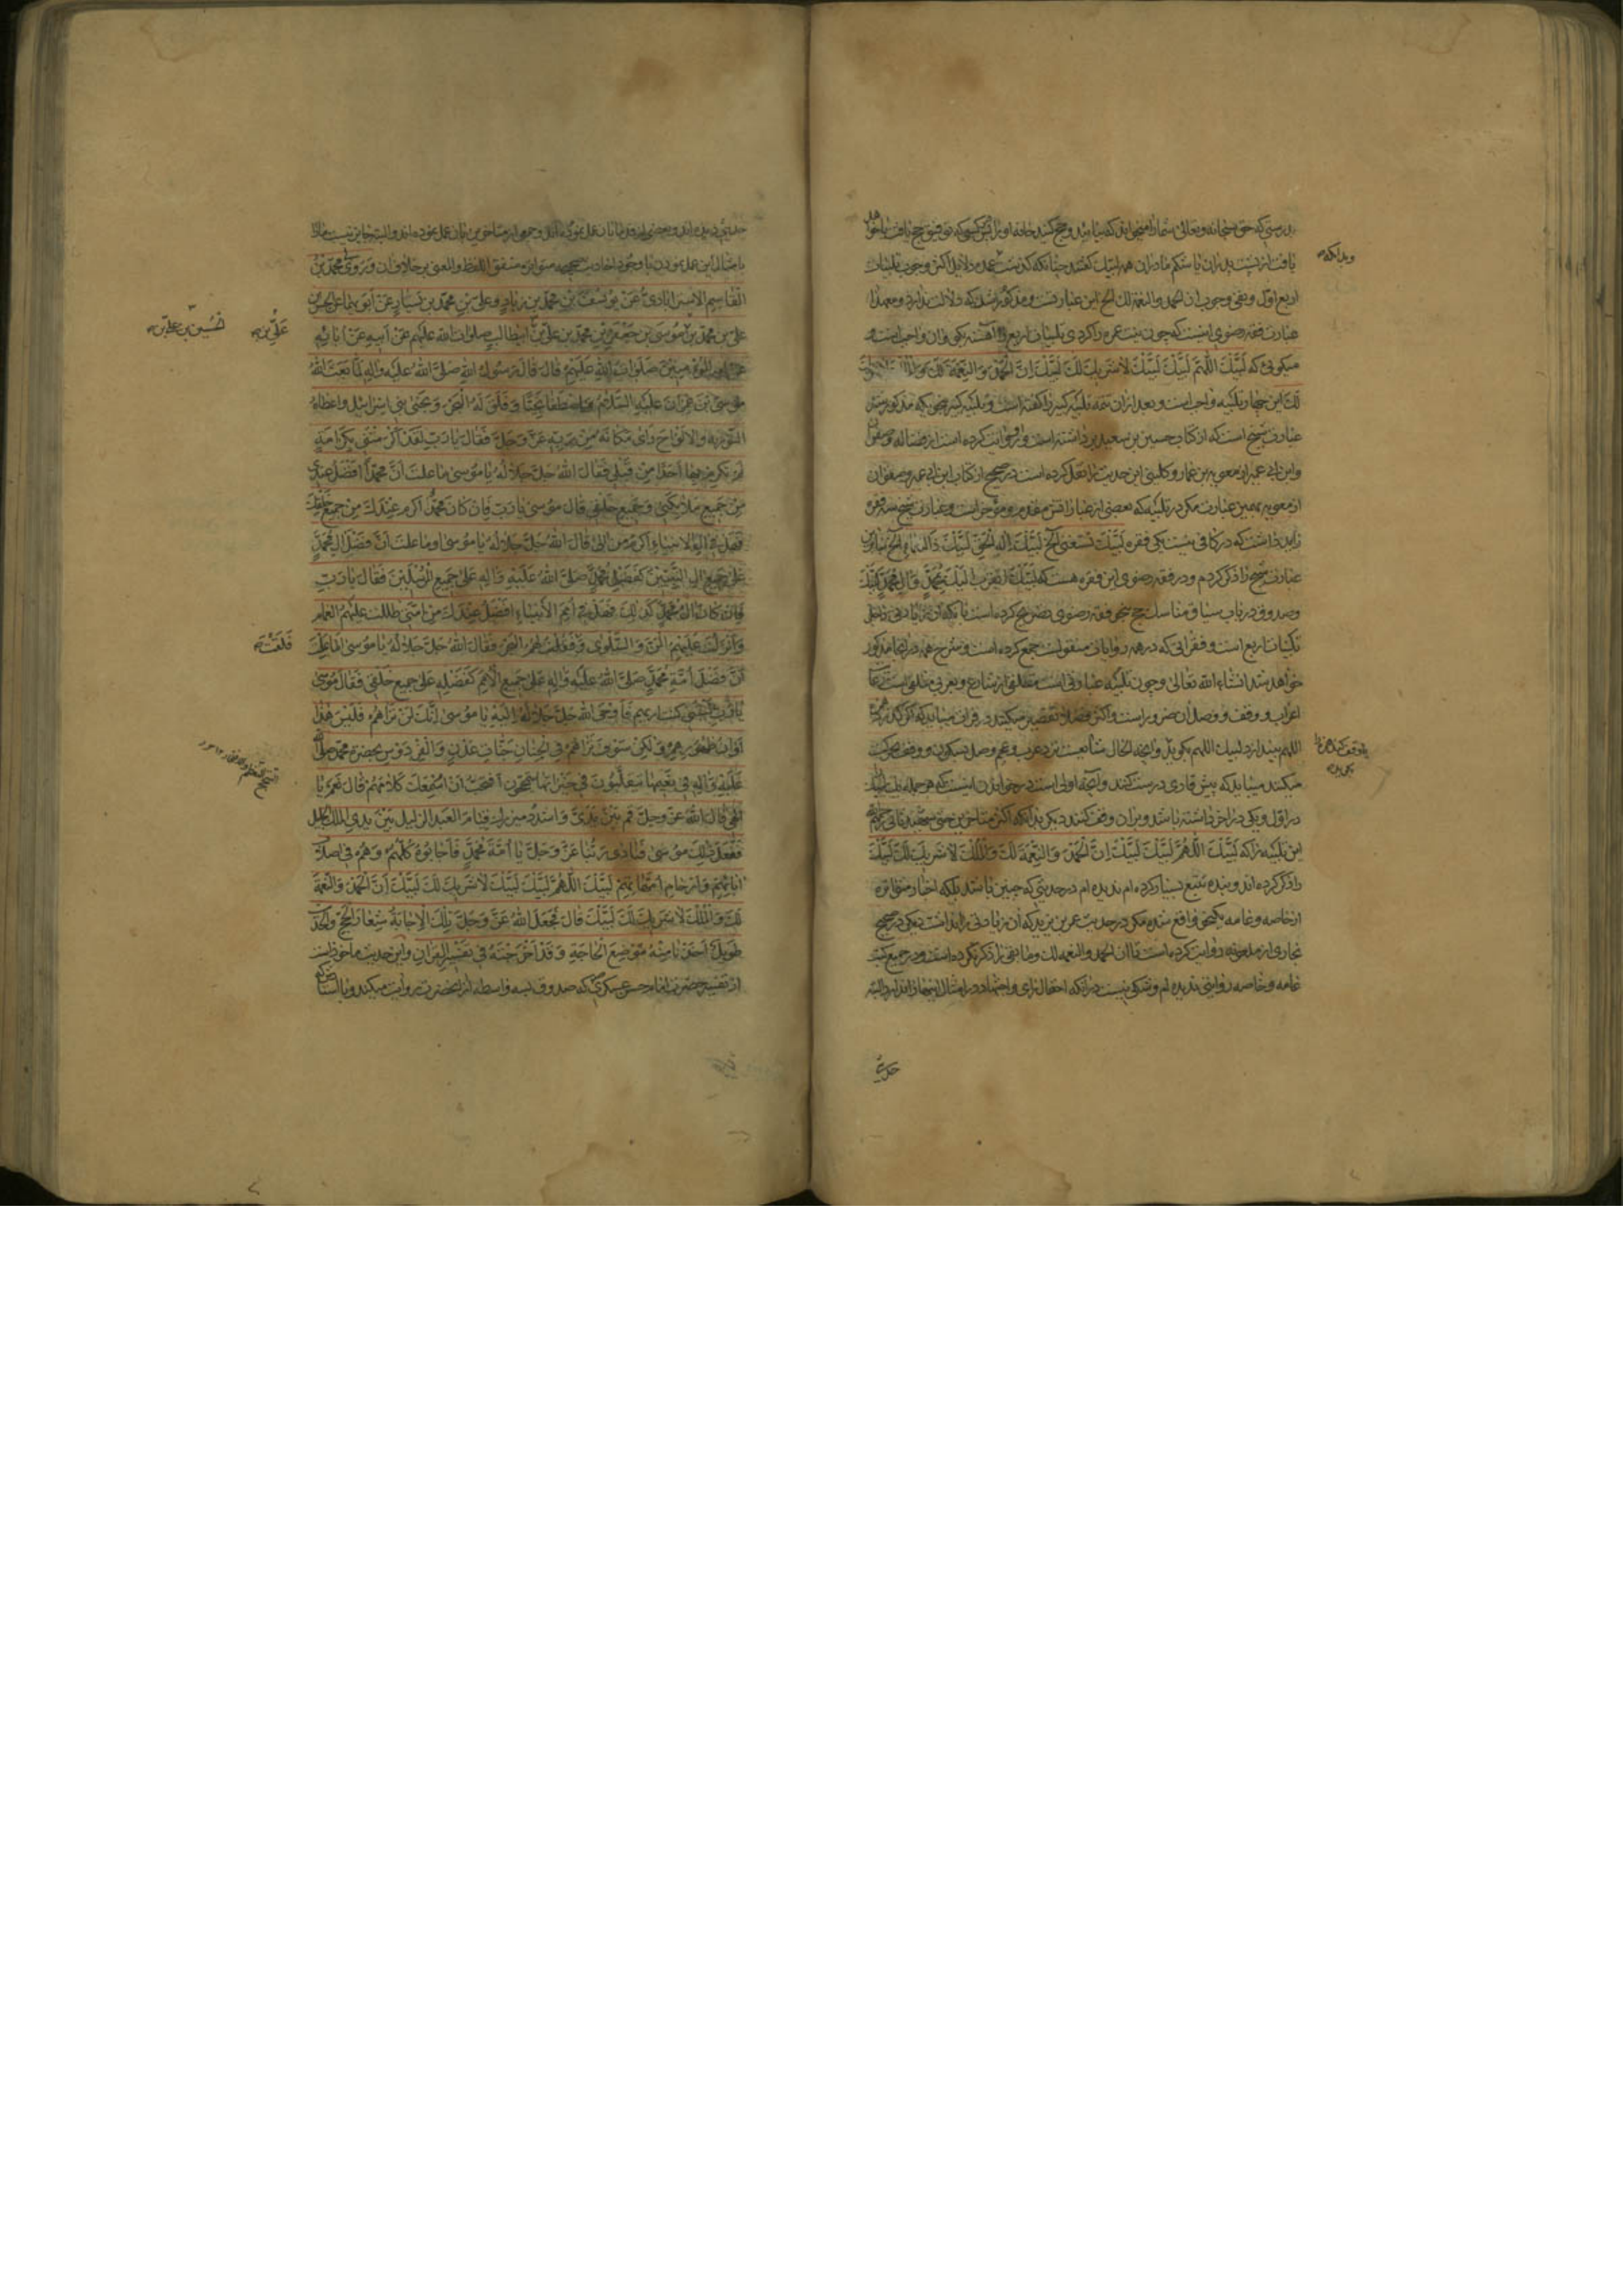 بدرستی که حق سبحانه و تعالی شما را میخواند که بیایید و حج کنید خانه او را پس کسی که توفیق حج یافت
یافت از پشت پدران یا شکم مادران همه لبیک گفتند چنانکه گذشت و دلایل اکثر وجوب تلبیات
اربع اول و نفی وجوب ان الحمد والنعمة لک الخ این عبارتست و مذکور شد که دلالت ندارد و معهذا
عبارت فقه رضوی اینست که چون نیت عمره را کردی تلبیات اربع را آهسته بگو و آن واجب است و
میگوئی که لَبَّیْکَ اللّهُمَّ لَبَّیْکَ لَبَّیْکَ لا شَریکَ لَکَ لَبَّیْکَ اِنَّ الْحَمْدَ وَ النِّعْمَةَ لَکَ
لک این چهار تلبیه واجب است و بعد از آن تتمه تلبیه کبیر را گفته است و تلبیه کبیر بنحوی که مذکور شد
عبارت شیخ است که از کتاب حسین بن سعید برداشته است و او روایت کرده است از فضاله و صفوان
وابن ابی عمیر از معویه بن عمار و کلینی این حدیث را نقل کرده است در صحیح از کتاب ابن ابی عمیر و صفوان
از معویه بهمین عبارت مگر در تلبیه که بعضی از عبارات مقدم و مؤخر است و عبارت شیخ سه فقره
زاید داشت که در کافی نیست یکی فقره لَبَّیْکَ تَسْتَغْنی الخ لَبَّیْکَ اِلهَ الْحَقِّ لَبَّیْکَ ذَا النعماء الخ
عبارت شیخ را ذکر کردم و در فقه رضوی این فقره هست که لَبَّیْکَ اَتَقَرَّبُ اِلَیْکَ بِمُحَمَّدٍ وَ آلِ مُحَمَّدٍ لَبَّیْکَ
وصدوق در باب سیاق مناسک حج بنحو فقه رضوی تصریح کرده است بآنکه آن زیادتی داخل
تلبیات اربع است و فقراتی که در همه روایات منقولست جمع کرده است و شرح همه در آنجا مذکور
خواهد شد انشاء الله تعالی و چون تلبیه عبادتی است متلقی از شارع و بعربی متلقی است رعایت
اعراب و وقف و وصل آن ضرور است و اکثر فضلا تقصیر میکنند در قرائت
اللهم بیندازد لبیک اللهم بگوید و اینحال متابعت نزد عرب و عجم وصل بسکون و وقف بحرکت
میکنند میباید که پیش قاری درست کنند و آنچه اولی است در خواندن اینست که هر جمله یک لبیک
در اول و یکی در آخر داشته باشد و بر آن وقف کنند دیگر بدانکه اکثر متاخرین حتی شهید ثانی
این تلبیه را که لَبَّیْکَ اللّهُمَّ لَبَّیْکَ لَبَّیْکَ اِنَّ الْحَمْدَ وَ النِّعْمَةَ لَکَ وَ الْمُلْکَ لا شَریکَ لَکَ لَبَّیْکَ
را ذکر کرده اند و بنده تتبع بسیار کرده ام ندیده ام در حدیثی که چنین باشد بلکه اخبار متواتره
از خاصه و عامه بنحوی واقع شده مگر در حدیث عمر بن یزید که آن زیادتی را نداشت و یکی در صحیح
بخاری از عایشه روایت کرده است تا ان الحمد والنعمه لک و مابقی را ذکر نکرده است و در جمیع کتب
عامه و خاصه روایتی ندیده ام و شکی نیست در آنکه احتمال رای و اجتهاد در امثال اینها
وبدانکه
حدیثی
حدیثی دیده اند و بعضی از قدما بآن عمل نموده اند و جمعی از متاخرین بآن عمل نموده اند والبته جایز نیست ما را
با امثال این عمل نمودن با وجود احادیث صحیحه متواتره متفق اللفظ والمعنی بر خلاف آن وَ رَوی مُحَمَّدُ بْنُ
الْقاسِمِ الاَسْتَرآبادیُّ عَنْ یُوسُفَ بْنِ مُحَمَّدِ بْنِ زِیادٍ وَ عَلِیِّ بْنِ مُحَمَّدِ بْنِ سَیّارٍ عَنْ اَبَوَیْهِما عَنِ الْحَسَنِ
عَلِیِّ بْنِ مُحَمَّدِ بْنِ مُوسَی بْنِ جَعْفَرِ بْنِ مُحَمَّدِ بْنِ عَلِیِّ بْنِ اَبیطالِبٍ صَلَواتُ اللهِ عَلَیْهِم عَنْ اَبیهِ عَنْ آبائِهِ
عَنْ اَمیرِ الْمُؤمِنینَ صَلَواتُ اللهِ عَلَیْهِمْ قالَ قالَ رَسُولُ اللهِ صَلَّی اللهُ عَلَیْهِ وَ آلِهِ لَمّا بَعَثَ اللهُ
مُوسَی بْنَ عِمْرانَ عَلَیْهِ السَّلامُ وَ اصْطَفاهُ نَجِیًّا وَ فَلَقَ لَهُ الْبَحْرَ وَ نَجّی بَنی اِسْرائیلَ وَ اَعْطاهُ
التَّوْریةَ وَ الاَلْواحَ رَای مَکانَهُ مِنْ رَبِّهِ عَزَّ وَ جَلَّ فَقالَ یا رَبِّ لَقَدْ اَکْرَمْتَنی بِکَرامَةٍ
لَمْ تُکْرِمْ بِها اَحَدًا مِنْ قَبْلی فَقالَ اللهُ جَلَّ جَلالُهُ یا مُوسی اَما عَلِمْتَ اَنَّ مُحَمَّدًا اَفْضَلُ عِنْدی
مِنْ جَمیعِ مَلائِکَتی وَ جَمیعِ خَلْقی قالَ مُوسی یا رَبِّ فَاِنْ کانَ مُحَمَّدٌ اَکْرَمَ عِنْدَکَ مِنْ جَمیعِ خَلْقِکَ
فَهَلْ فی آلِ الاَنْبِیاءِ اَکْرَمُ مِنْ آلی قالَ اللهُ جَلَّ جَلالُهُ یا مُوسی اَوَما عَلِمْتَ اَنَّ فَضْلَ آلِ مُحَمَّدٍ
عَلی جَمیعِ آلِ النَّبِیّینَ کَفَضْلِ مُحَمَّدٍ صَلَّی اللهُ عَلَیْهِ وَ آلِهِ عَلی جَمیعِ الْمُرْسَلینَ فَقالَ یا رَبِّ
فَاِنْ کانَ آلُ مُحَمَّدٍ کَذلِکَ فَهَلْ فی اُمَمِ الاَنْبِیاءِ اَفْضَلُ عِنْدَکَ مِنْ اُمَّتی ظَلَّلْتَ عَلَیْهِمُ الْغَمامَ
وَ اَنْزَلْتَ عَلَیْهِمُ الْمَنَّ وَ السَّلْوی وَ فَلَقْتَ لَهُمُ الْبَحْرَ فَقالَ اللهُ جَلَّ جَلالُهُ یا مُوسی اَما عَلِمْتَ
اَنَّ فَضْلَ اُمَّةِ مُحَمَّدٍ صَلَّی اللهُ عَلَیْهِ وَ آلِهِ عَلی جَمیعِ الاُمَمِ کَفَضْلِهِ عَلی جَمیعِ خَلْقی فَقالَ مُوسی
یا رَبِّ لَیْتَنی کُنْتُ اَراهُمْ فَاَوْحَی اللهُ جَلَّ جَلالُهُ اِلَیْهِ یا مُوسی اِنَّکَ لَنْ تَراهُمْ فَلَیْسَ هذا
اَوانَ ظُهُورِهِمْ وَ لکِنْ سَوْفَ تَراهُمْ فِی الْجِنانِ جَنّاتِ عَدْنٍ وَ الْفِرْدَوْسِ بِحَضْرَةِ مُحَمَّدٍ صَلَّی اللهُ
عَلَیْهِ وَ آلِهِ فی نَعیمِها یَتَقَلَّبُونَ وَ فی خَیْراتِها یَتَبَجَّحُونَ اَفَتُحِبُّ اَنْ اُسْمِعَکَ کَلامَهُمْ قالَ نَعَمْ یا
اِلهی قالَ اللهُ عَزَّ وَ جَلَّ قُمْ بَیْنَ یَدَیَّ وَ اشْدُدْ مِئْزَرَکَ قِیامَ الْعَبْدِ الذَّلیلِ بَیْنَ یَدَیِ الْمَلِکِ الْجَلیلِ
فَفَعَلَ ذلِکَ مُوسی فَنادی رَبُّنا عَزَّ وَ جَلَّ یا اُمَّةَ مُحَمَّدٍ فَاَجابُوهُ کُلُّهُمْ وَ هُمْ فی اَصْلابِ
آبائِهِمْ وَ اَرْحامِ اُمَّهاتِهِمْ لَبَّیْکَ اللّهُمَّ لَبَّیْکَ لَبَّیْکَ لا شَریکَ لَکَ لَبَّیْکَ اِنَّ الْحَمْدَ وَ النِّعْمَةَ
لَکَ وَ الْمُلْکَ لا شَریکَ لَکَ لَبَّیْکَ قالَ فَجَعَلَ اللهُ عَزَّ وَ جَلَّ تِلْکَ الاِجابَةَ شِعارَ الْحَجِّ وَ الْحَدیثُ
طَویلٌ اَخَذْنا مِنْهُ مَوْضِعَ الْحاجَةِ وَ قَدْ اَخْرَجْتُهُ فی تَفْسیرِ الْقُرآنِ و این حدیث ماخوذ است
از تفسیر حضرت امام حسن عسکری که صدوق بسه واسطه از آنحضرت روایت میکند و
عَلِیِّ بْنِ
حُسَیْنِ بْنِ عَلِیِّ بْنِ
فَلَقْتَ